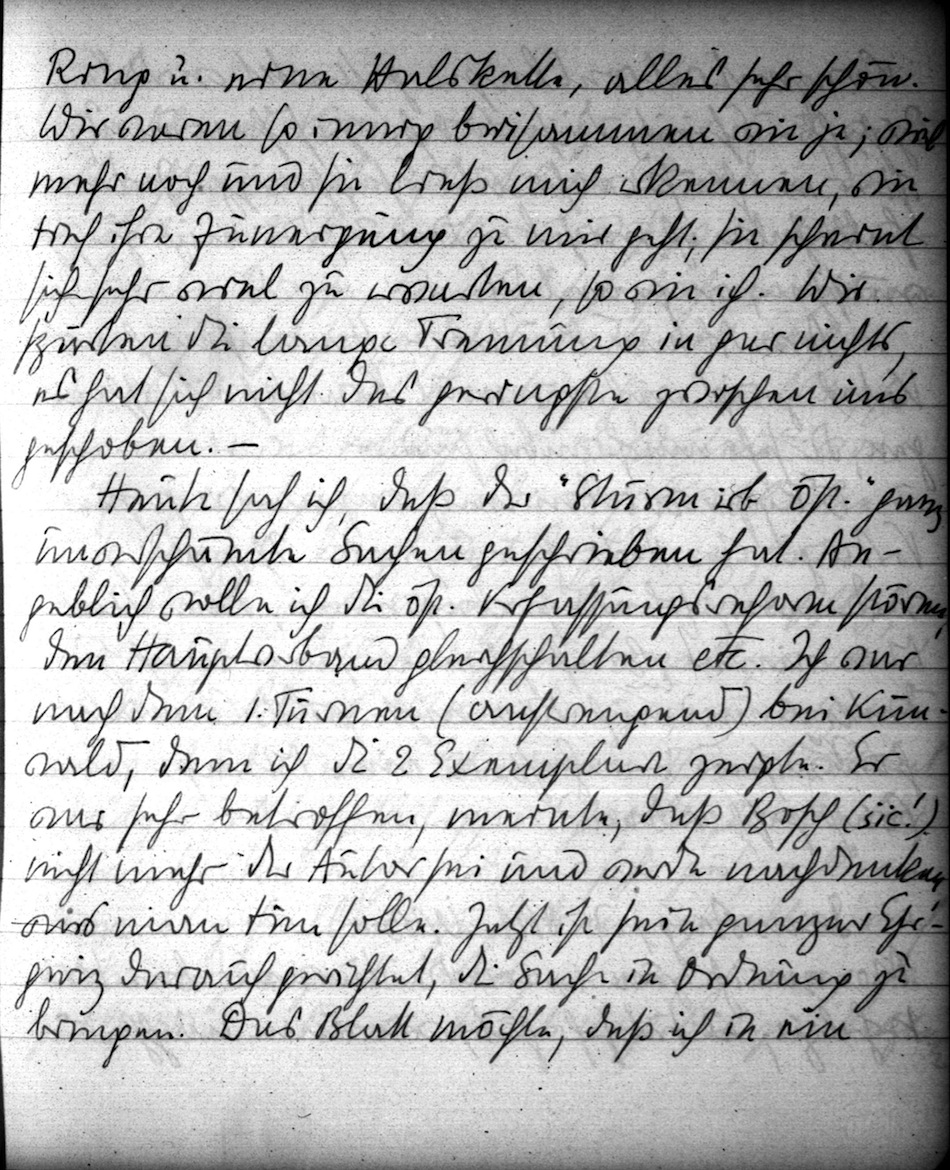 Ring u. eine Halskette, alles sehr schön.
Wir waren so innig beisammen wie je; viel
mehr noch und sie ließ mich erkennen, wie
tief ihre Zuneigung zu mir geht; sie scheint
sich sehr viel zu erwarten, so wie ich. Wir
spürten die lange Trennung in gar nichts,
es hat sich nicht das geringste zwischen uns
geschoben. —
Heute sah ich, daß der "Sturm üb. Öst." ganz
unverschämte Sachen geschrieben hat. An-
geblich wolle ich die öst. Verfassungsreform stören,
den Hauptverband gleichschalten etc. Ich war
nach dem 1. Turnen (anstrengend) bei Kun-
wald, dem ich die 2 Exemplare zeigte. Er
war sehr betroffen, meinte, daß Bosch (sic!)
nicht mehr der Autor sei und werde nachdenken
was man tun solle. Jetzt ist sein ganzer Ehr-
geiz darauf gerichtet, die Sache in Ordnung zu
bringen. Das Blatt möchte, daß ich in ein